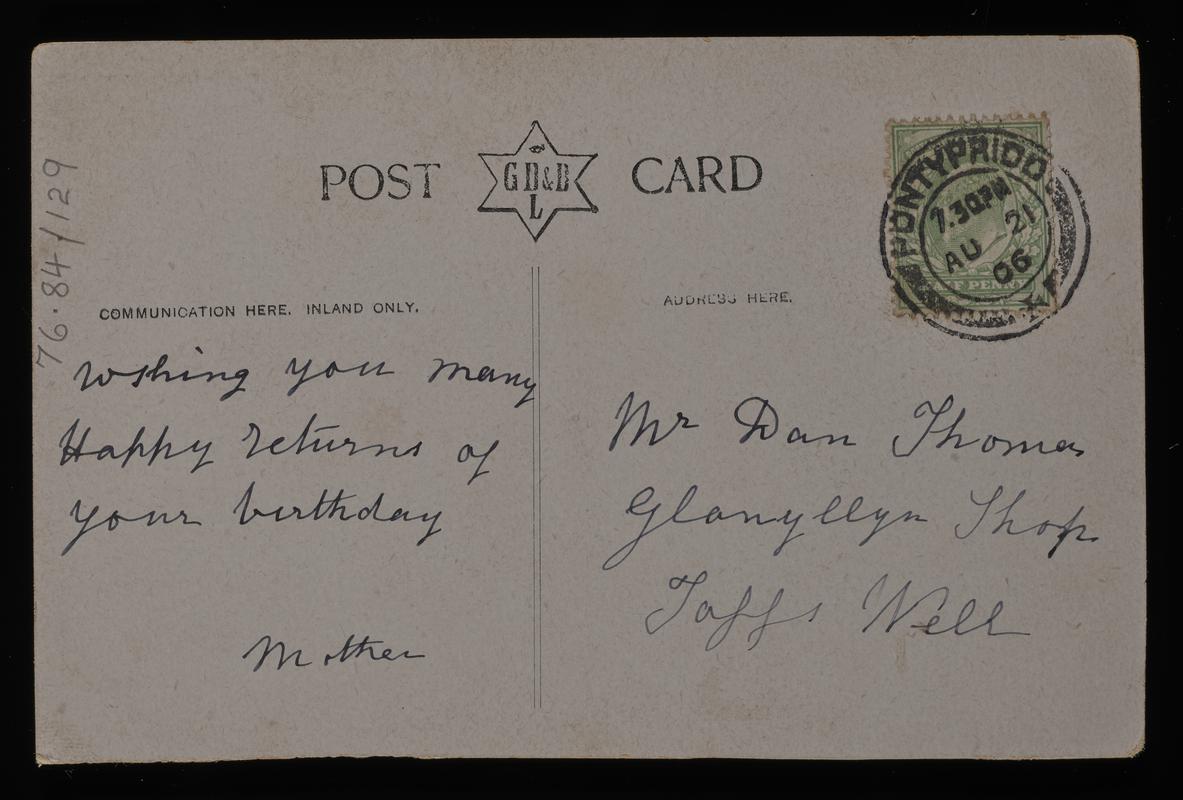 76.84/129
POST GD&D L CARD
PONTYPRIDD
7.30PM
AU 21
06
COMMUNICATION HERE. INLAND ONLY.
ADDRESS HERE.
Wshing you many
Happy returns of
your birthday
Mother
Mr Dan Thomas
Glanyllyn Shop
Taffs Well